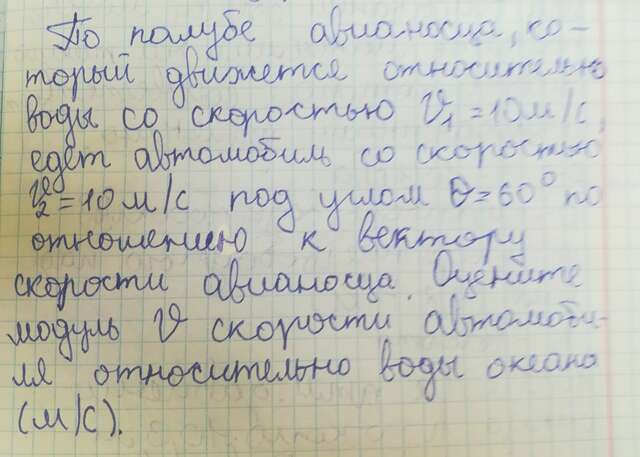 По палубе авианосца, ко-
торый движется относительно
воды со скоростью V₁ = 10 м/с,
едет автомобиль со скоростью
V₂ = 10 м/с под углом θ = 60° по
отношению к вектору
скорости авианосца. Оцените
модуль V скорости автомоби-
ля относительно воды океана
(м/с).